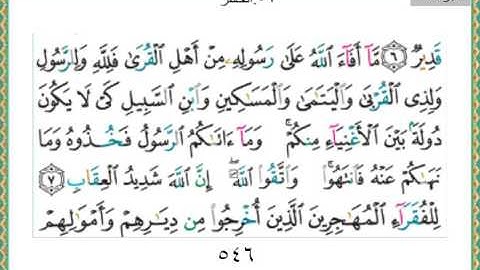 قَدِيرٌ ٦ مَّآ أَفَآءَ اللَّهُ عَلَىٰ رَسُولِهِ مِنْ أَهْلِ الْقُرَىٰ فَلِلَّهِ وَلِلرَّسُولِ
وَلِذِي الْقُرْبَىٰ وَالْيَتَامَىٰ وَالْمَسَاكِينِ وَابْنِ السَّبِيلِ كَىْ لَا يَكُونَ
دُولَةً بَيْنَ الْأَغْنِيَآءِ مِنكُمْ ۚ وَمَآ ءَاتَاكُمُ الرَّسُولُ فَخُذُوهُ وَمَا
نَهَاكُمْ عَنْهُ فَانتَهُوا ۚ وَاتَّقُوا اللَّهَ ۖ إِنَّ اللَّهَ شَدِيدُ الْعِقَابِ ٧
لِلْفُقَرَآءِ الْمُهَاجِرِينَ الَّذِينَ أُخْرِجُوا مِن دِيَارِهِمْ وَأَمْوَالِهِمْ
٥٤٦